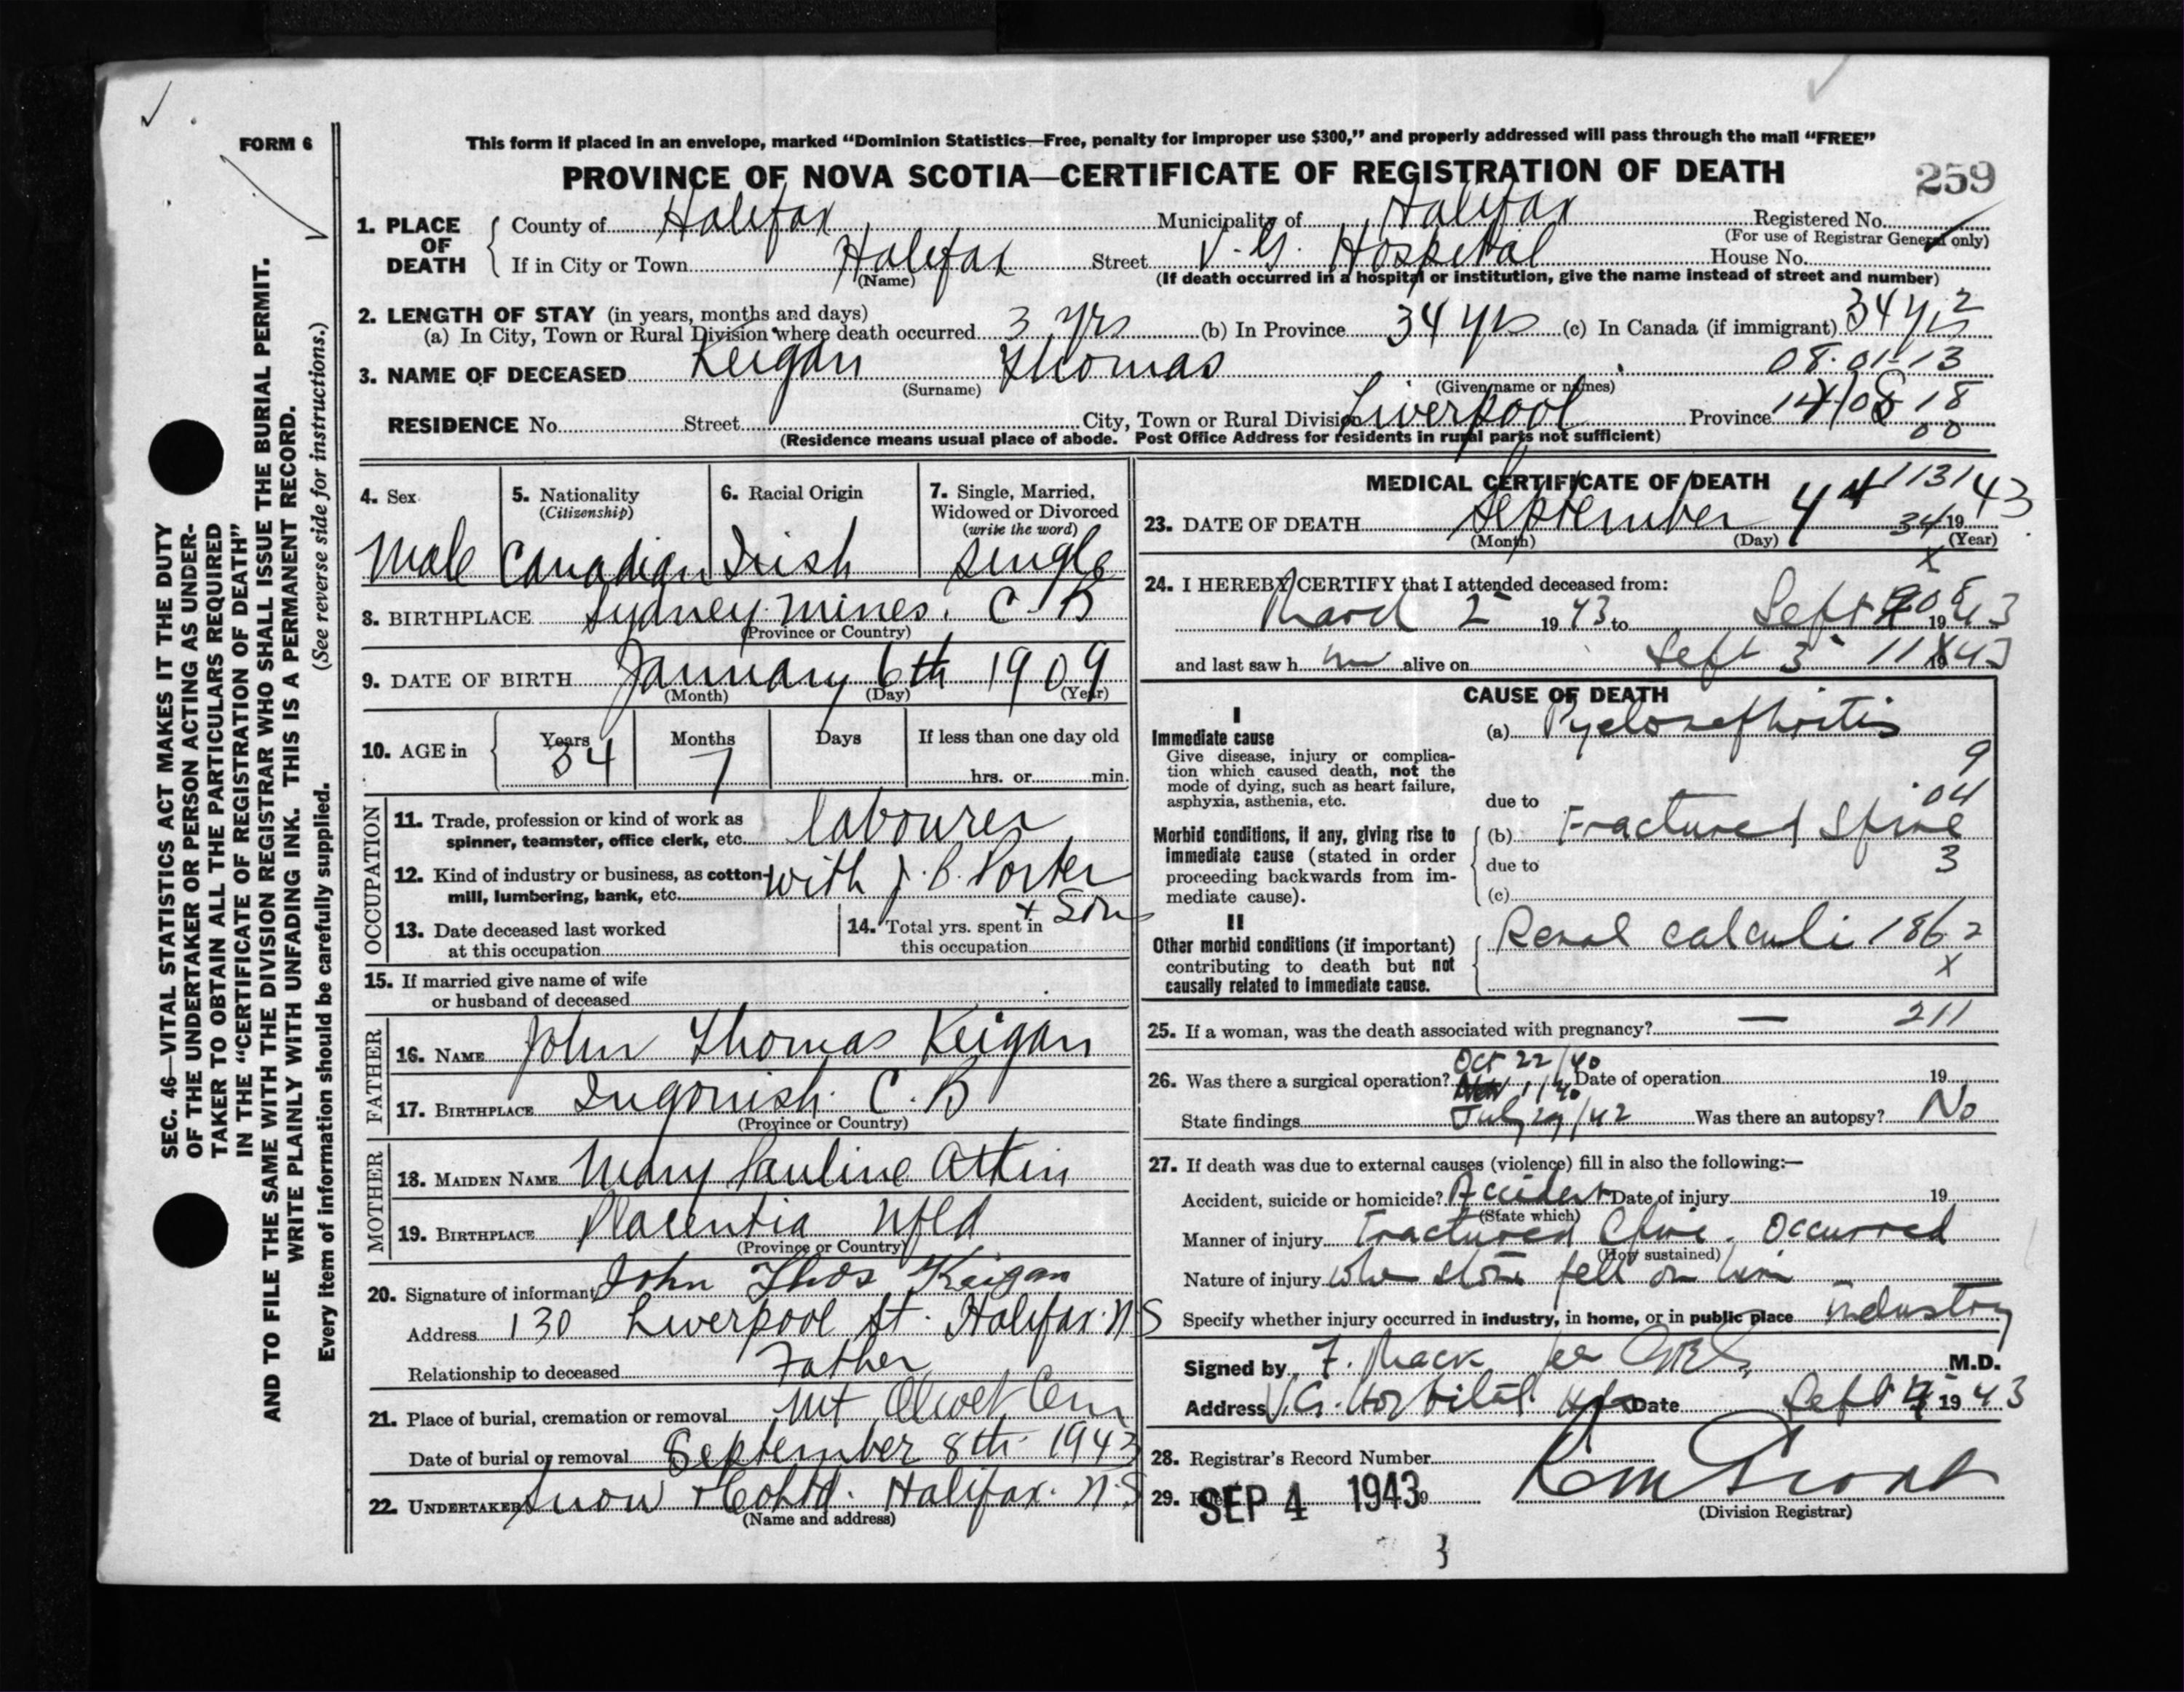 FORM 6
This form if placed in an envelope, marked “Dominion Statistics—Free, penalty for improper use $300,” and properly addressed will pass through the mail “FREE”
PROVINCE OF NOVA SCOTIA—CERTIFICATE OF REGISTRATION OF DEATH
259
1. PLACE OF DEATH
County of Halifax Municipality of Halifax Registered No.
(For use of Registrar General only)
If in City or Town Halifax Street V. G. Hospital House No.
(Name) (If death occurred in a hospital or institution, give the name instead of street and number)
2. LENGTH OF STAY (in years, months and days)
(a) In City, Town or Rural Division where death occurred 3 yrs (b) In Province 34 yrs (c) In Canada (if immigrant) 34 yrs 2
3. NAME OF DECEASED Keigan Thomas 08-01-13
(Surname) (Given name or names)
RESIDENCE No. Street City, Town or Rural Division Liverpool Province 18
(Residence means usual place of abode. Post Office Address for residents in rural parts not sufficient) 00
SEC. 46—VITAL STATISTICS ACT MAKES IT THE DUTY
OF THE UNDERTAKER OR PERSON ACTING AS UNDER-
TAKER TO OBTAIN ALL THE PARTICULARS REQUIRED
IN THE “CERTIFICATE OF REGISTRATION OF DEATH”
AND TO FILE THE SAME WITH THE DIVISION REGISTRAR WHO SHALL ISSUE THE BURIAL PERMIT.
WRITE PLAINLY WITH UNFADING INK. THIS IS A PERMANENT RECORD.
Every item of information should be carefully supplied. (See reverse side for instructions.)
4. Sex
Male
5. Nationality
(Citizenship)
Canadian
6. Racial Origin
Irish
7. Single, Married,
Widowed or Divorced
(write the word)
Single
8. BIRTHPLACE Sydney Mines. C. B
(Province or Country)
9. DATE OF BIRTH January 6th 1909
(Month) (Day) (Year)
10. AGE in Years 34 Months 7 Days If less than one day old
hrs. or min.
OCCUPATION
11. Trade, profession or kind of work as
spinner, teamster, office clerk, etc. labourer
12. Kind of industry or business, as cotton-
mill, lumbering, bank, etc. with J. B. Porter
+ Son
13. Date deceased last worked
at this occupation
14. Total yrs. spent in
this occupation
15. If married give name of wife
or husband of deceased
FATHER
16. NAME John Thomas Keigan
17. BIRTHPLACE Ingonish. C. B
(Province or Country)
MOTHER
18. MAIDEN NAME Mary Pauline Atkin
19. BIRTHPLACE Placentia Nfld
(Province or Country)
20. Signature of informant John Thos Keigan
Address 130 Liverpool St. Halifax. N S
Relationship to deceased Father
21. Place of burial, cremation or removal Mt Olivet Cem
Date of burial or removal September 8th. 1943
22. UNDERTAKER Snow + Co Ltd. Halifax. N. S
(Name and address)
MEDICAL CERTIFICATE OF DEATH 113
23. DATE OF DEATH September 4th 34 1943
(Month) (Day) (Year)
x
24. I HEREBY CERTIFY that I attended deceased from:
March 2 1943 to Sept 1943
and last saw h im alive on Sept 3 1943
CAUSE OF DEATH
I
Immediate cause
Give disease, injury or complica-
tion which caused death, not the
mode of dying, such as heart failure,
asphyxia, asthenia, etc.
(a) Pyelonephritis
9
due to 04
Morbid conditions, if any, giving rise to
immediate cause (stated in order
proceeding backwards from im-
mediate cause).
(b) Fractured Spine
due to 3
(c)
II
Other morbid conditions (if important)
contributing to death but not
causally related to immediate cause.
Renal calculi 186 2
x
25. If a woman, was the death associated with pregnancy? — 211
Oct 22/40
26. Was there a surgical operation? Date of operation 19
State findings July 29/42 Was there an autopsy? No
27. If death was due to external causes (violence) fill in also the following:—
Accident, suicide or homicide? Accident Date of injury 19
(State which)
Manner of injury Fractured Spine. Occurred
(How sustained)
Nature of injury when stone fell on him
Specify whether injury occurred in industry, in home, or in public place industry
Signed by F. Mack per M.D.
Address V. G. Hospital Hfx Date Sept 1943
28. Registrar's Record Number
29. SEP 4 1943
(Division Registrar)